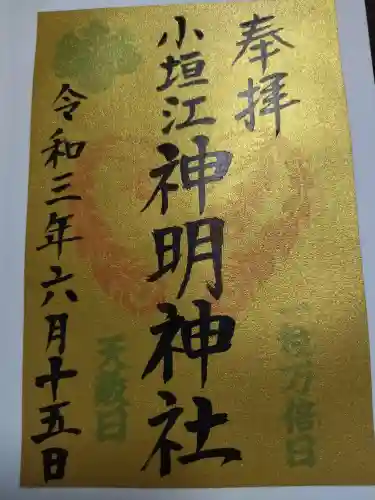 奉拝
小垣江神明神社
令和三年六月十五日
一粒万倍日
天赦日